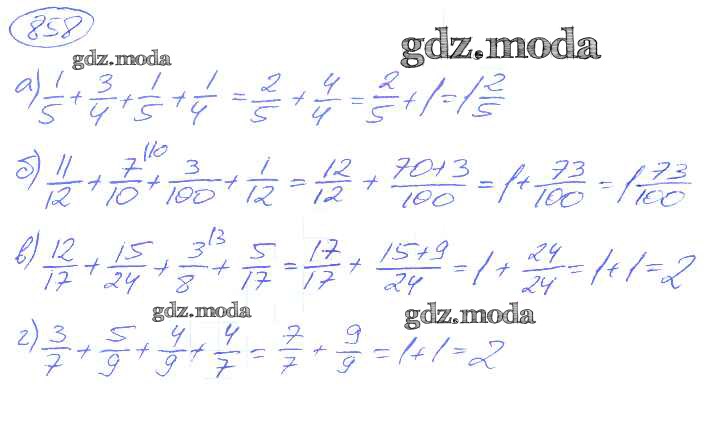 858
gdz.moda
gdz.moda
а) 1/5 + 3/4 + 1/5 + 1/4 = 2/5 + 4/4 = 2/5 + 1 = 1 2/5
б) 11/12 + 7/10 |10 + 3/100 + 1/12 = 12/12 + 70+3/100 = 1 + 73/100 = 1 73/100
в) 12/17 + 15/24 + 3/8 |3 + 5/17 = 17/17 + 15+9/24 = 1 + 24/24 = 1 + 1 = 2
gdz.moda
gdz.moda
г) 3/7 + 5/9 + 4/9 + 4/7 = 7/7 + 9/9 = 1 + 1 = 2